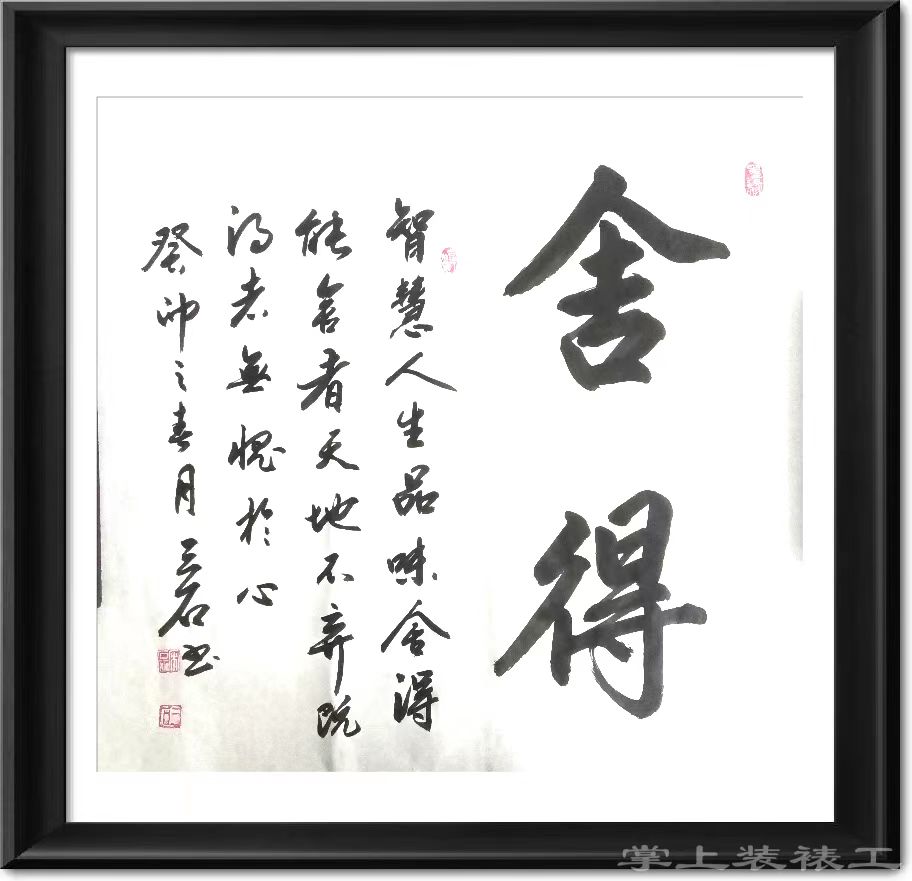 舍得
智慧人生品味舍得
能舍者天地不弃既
得者無愧於心
癸卯之春月三石书
掌上装裱工